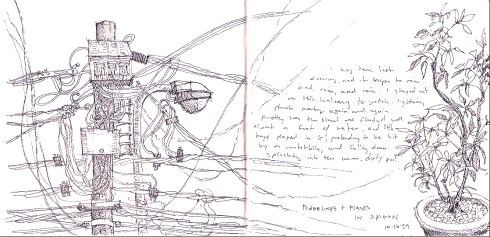 I was here last
evening, and it began to rain
and rain, and rain. I stayed out
on this balcony to watch. Lightning
struck nearby again and again.
Pretty soon the street was flooded with
about a foot of water, and little
boys played in it, pretending to be hit
by automobiles, and falling down
splashing into the warm, dirty pool.
POWERLINES + PLANTS
IN SAIGON
10·18·09